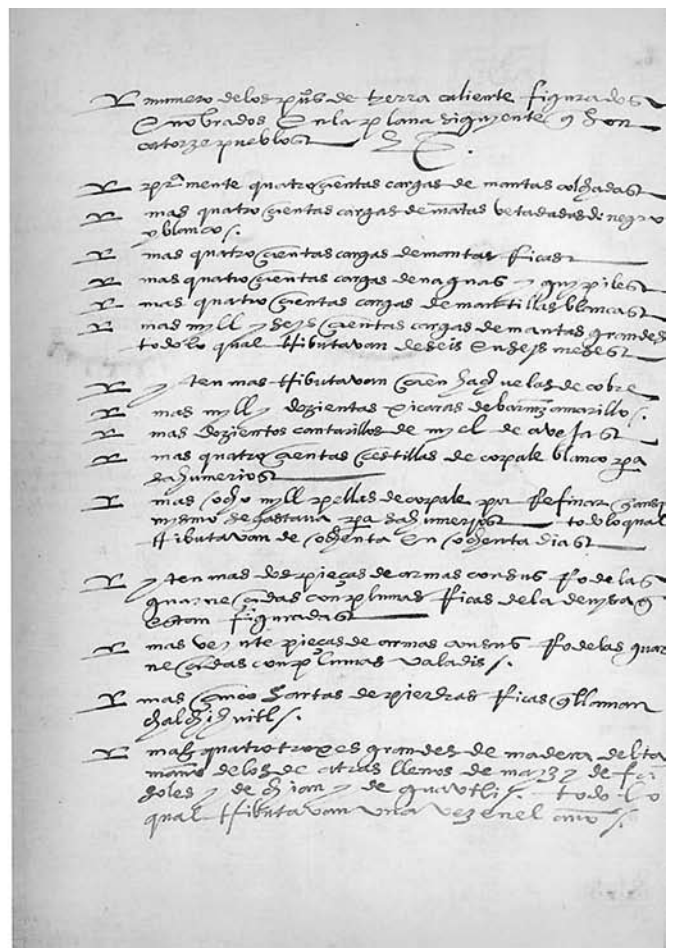 numero de los pu̅s de tierra caliente figurados
E nonbrados En la plana siguyente q̅ son
catorze pueblos
pr̅mente quatroçientas cargas de mantas colchadas
mas quatroçientas cargas de ma̅tas vetadas de negro
y blanco /.
mas quatroçientas cargas de mantas Ricas
mas quatroçientas cargas de naguas y guypiles
mas quatroçientas cargas de mantillas blancas
mas myll y seys çientas cargas de mantas grandes
todo lo qual tributavan de seis En seis meses
yten mas tributavan çien hachuelas de cobre
mas myll y dozientas xicaras de barniz amarillo /.
mas dozientos cantarillos de myel de avejas
mas quatroçientas çestillas de copale blanco pa̅
sahumerios
mas ocho myll pellas de copale por Refinar q̅ ansi
mysmo se gastava pa̅ sahumerios todo lo qual
tributavan de ochenta En ochenta dias
yten mas dos pieças de armas con sus Rodelas
guarneçidas con plumas Ricas de la devysa q̅
estan figuradas
mas veynte pieças de armas con sus Rodelas guar
neçidas con plumas valadis /.
mas çinco sartas de piedras Ricas q̅ llaman
chalchihuitl /.
mas quatro troxes grandes de madera del ta
maño de los de atras llenos de mayz y de fri
soles y de chian y de guavtli /. todo lo
qual tributavan una vez en el año /.